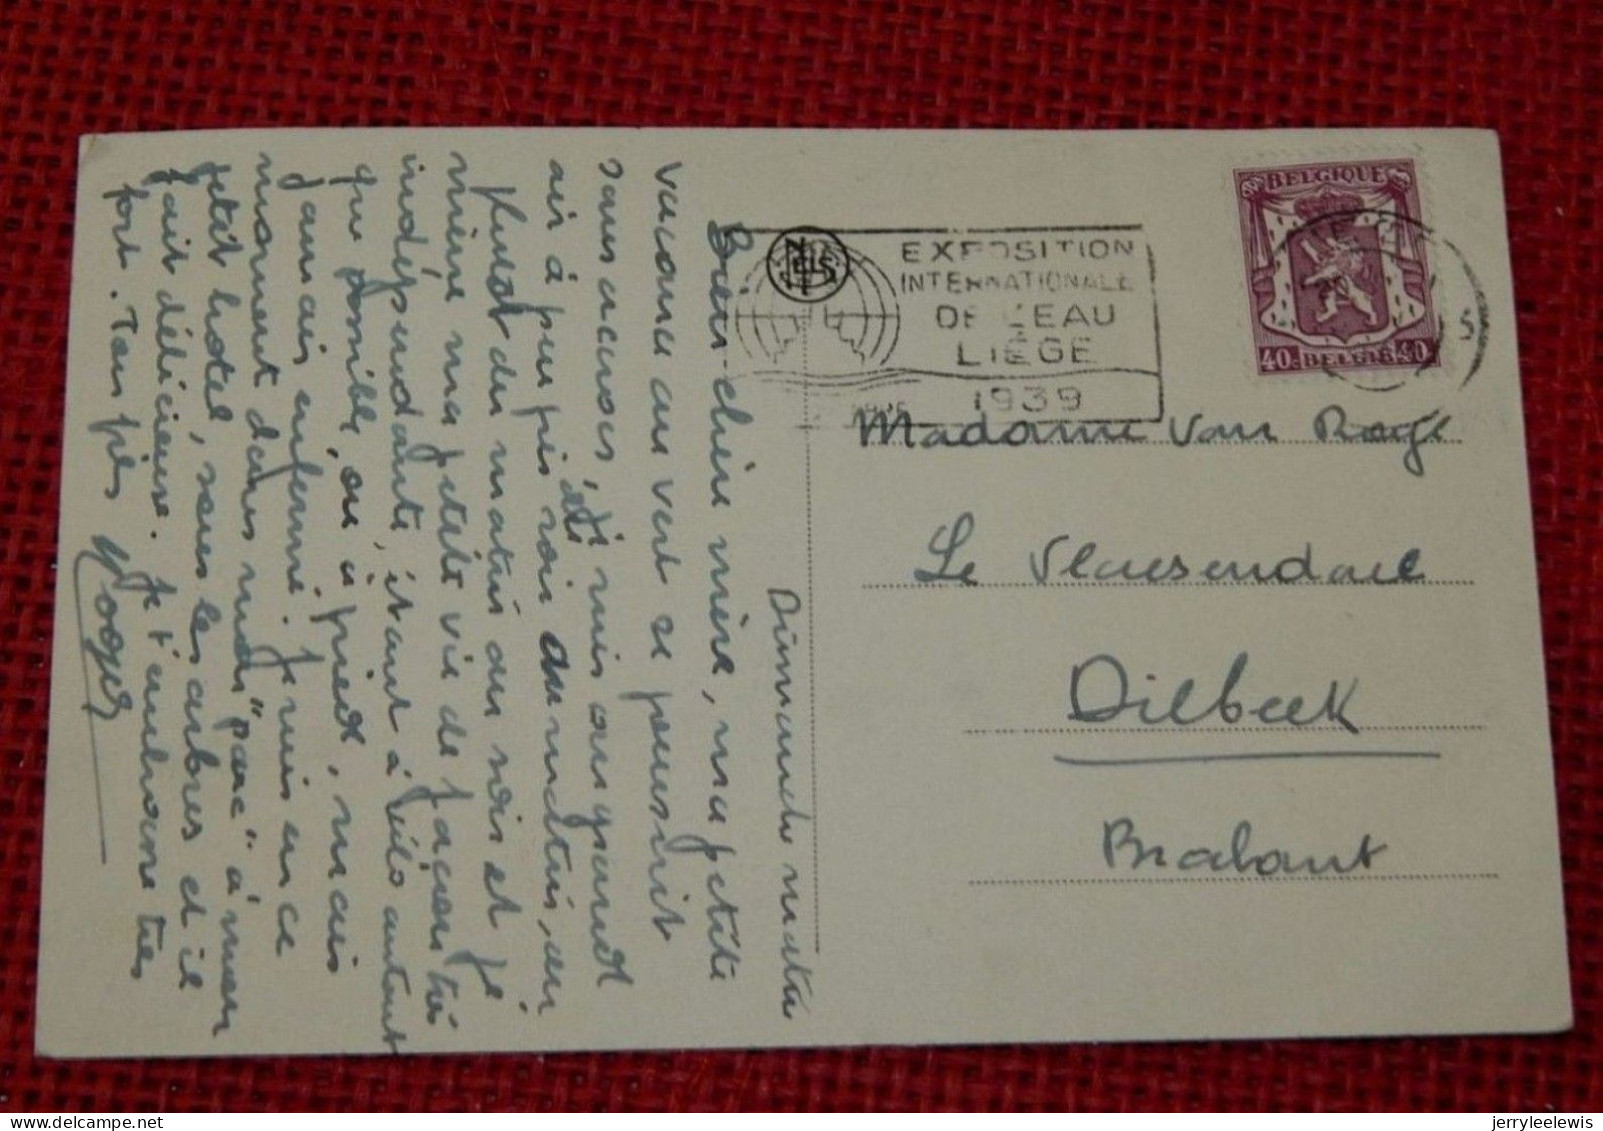 Dimanche matin
Bien chère mère, ma petite
vacance au vert se poursuit
sans accroc, je suis au grand
air à peu près du matin au
soir et du matin au soir et je
mène ma petite vie de façon très
indépendante, étant à vélo autant
que possible, ou à pied, mais
jamais enfermé. Je suis en ce
moment dans mon "parc" à mon
petit hotel, sous les arbres et il
fait délicieux. Je t'embrasse très
fort. Ton fils Roger
NELS
EXPOSITION
INTERNATIONALE
DE L'EAU
LIÈGE
1939
BELGIQUE
40c BELGIË 40c
Madame Van
Le Vlaesendael
Dilbeek
Brabant
jerryleelewis